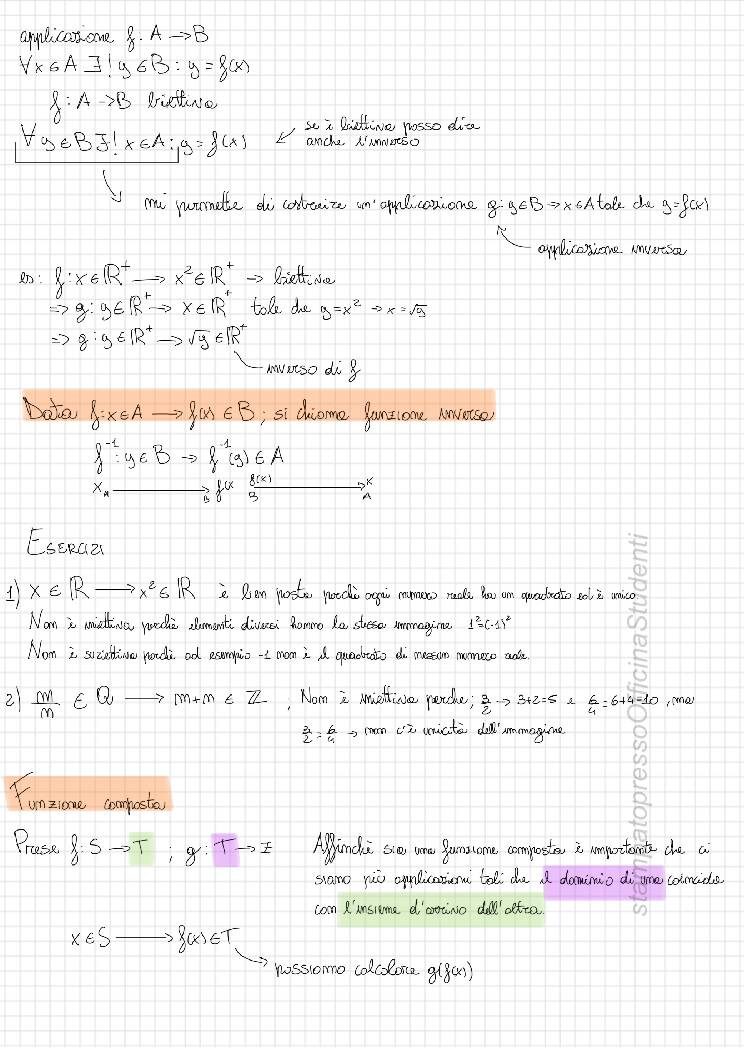 applicazione f: A → B
∀x∈A ∃! y∈B : y = f(x)
f: A → B biettiva
∀ y∈B ∃! x∈A : y = f(x) ← se è biettiva posso dire
anche l'inverso
mi permette di costruire un'applicazione g: y∈B → x∈A tale che y=f(x)
applicazione inversa
es: f: x∈ℝ⁺ → x²∈ℝ⁺ → biettiva
=> g: y∈ℝ⁺ → x∈ℝ⁺ tale che y=x² → x=√y
=> g: y∈ℝ⁺ → √y∈ℝ⁺
inverso di f
Data f: x∈A → f(x) ∈B ; si chiama funzione inversa
f⁻¹: y∈B → f⁻¹(y) ∈ A
x A → B f(x f(x) B → x A
ESERCIZI
1) x∈ℝ → x²∈ℝ è ben posta perchè ogni numero reale ha un quadrato ed è unico
Non è iniettiva perchè elementi diversi hanno la stessa immagine 1²=(-1)²
Non è suriettiva perchè ad esempio -1 non è il quadrato di nessun numero reale.
2) m/n ∈ ℚ → m+n ∈ ℤ , Non è iniettiva perche; 3/2 → 3+2=5 e 6/4 = 6+4=10 , ma
3/2 = 6/4 → non c'è unicità dell'immagine
Funzione composta
Prese f: S → T ; g: T → Z Affinchè sia una funzione composta è importante che ci
siano più applicazioni tali che il dominio di una coincida
con l'insieme d'arrivo dell'altra.
x∈S → f(x)∈T
possiamo calcolare g(f(x))
stampatopressoOfficinaStudenti